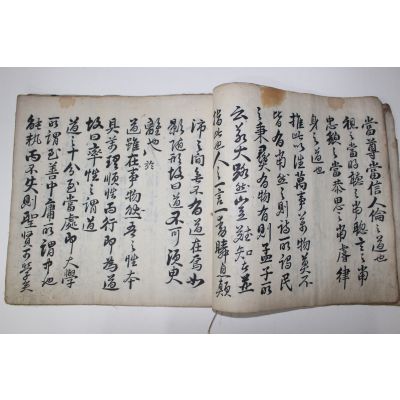 當尊當信人倫之道也
視之當明聽之當聰言之當
忠貌之當恭思之當睿律
身之道也
推此以往萬事萬物莫不
皆有當然之則詩所謂民
之秉彛有物有則孟子所
云若大路然豈難知者並
指此也人之一言一動瞬息顛
沛之間無不有道在焉如
影隨形故曰道不可須臾
離也
道雖在事物然吾之性本
具萬理順性而行即為道
故曰率性之謂道
道之十分至當處即大學
所謂至善中庸所謂中也
能執而不失則聖賢可學矣